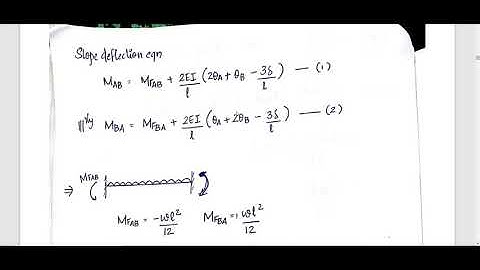 Slope deflection eqn
M_AB = M_FAB + 2EI/l (2θ_A + θ_B − 3δ/l) — (1)
|||ly M_BA = M_FBA + 2EI/l (θ_A + 2θ_B − 3δ/l) — (2)
M_FAB
⇒
M_FAB = −ωl²/12 M_FBA = ωl²/12